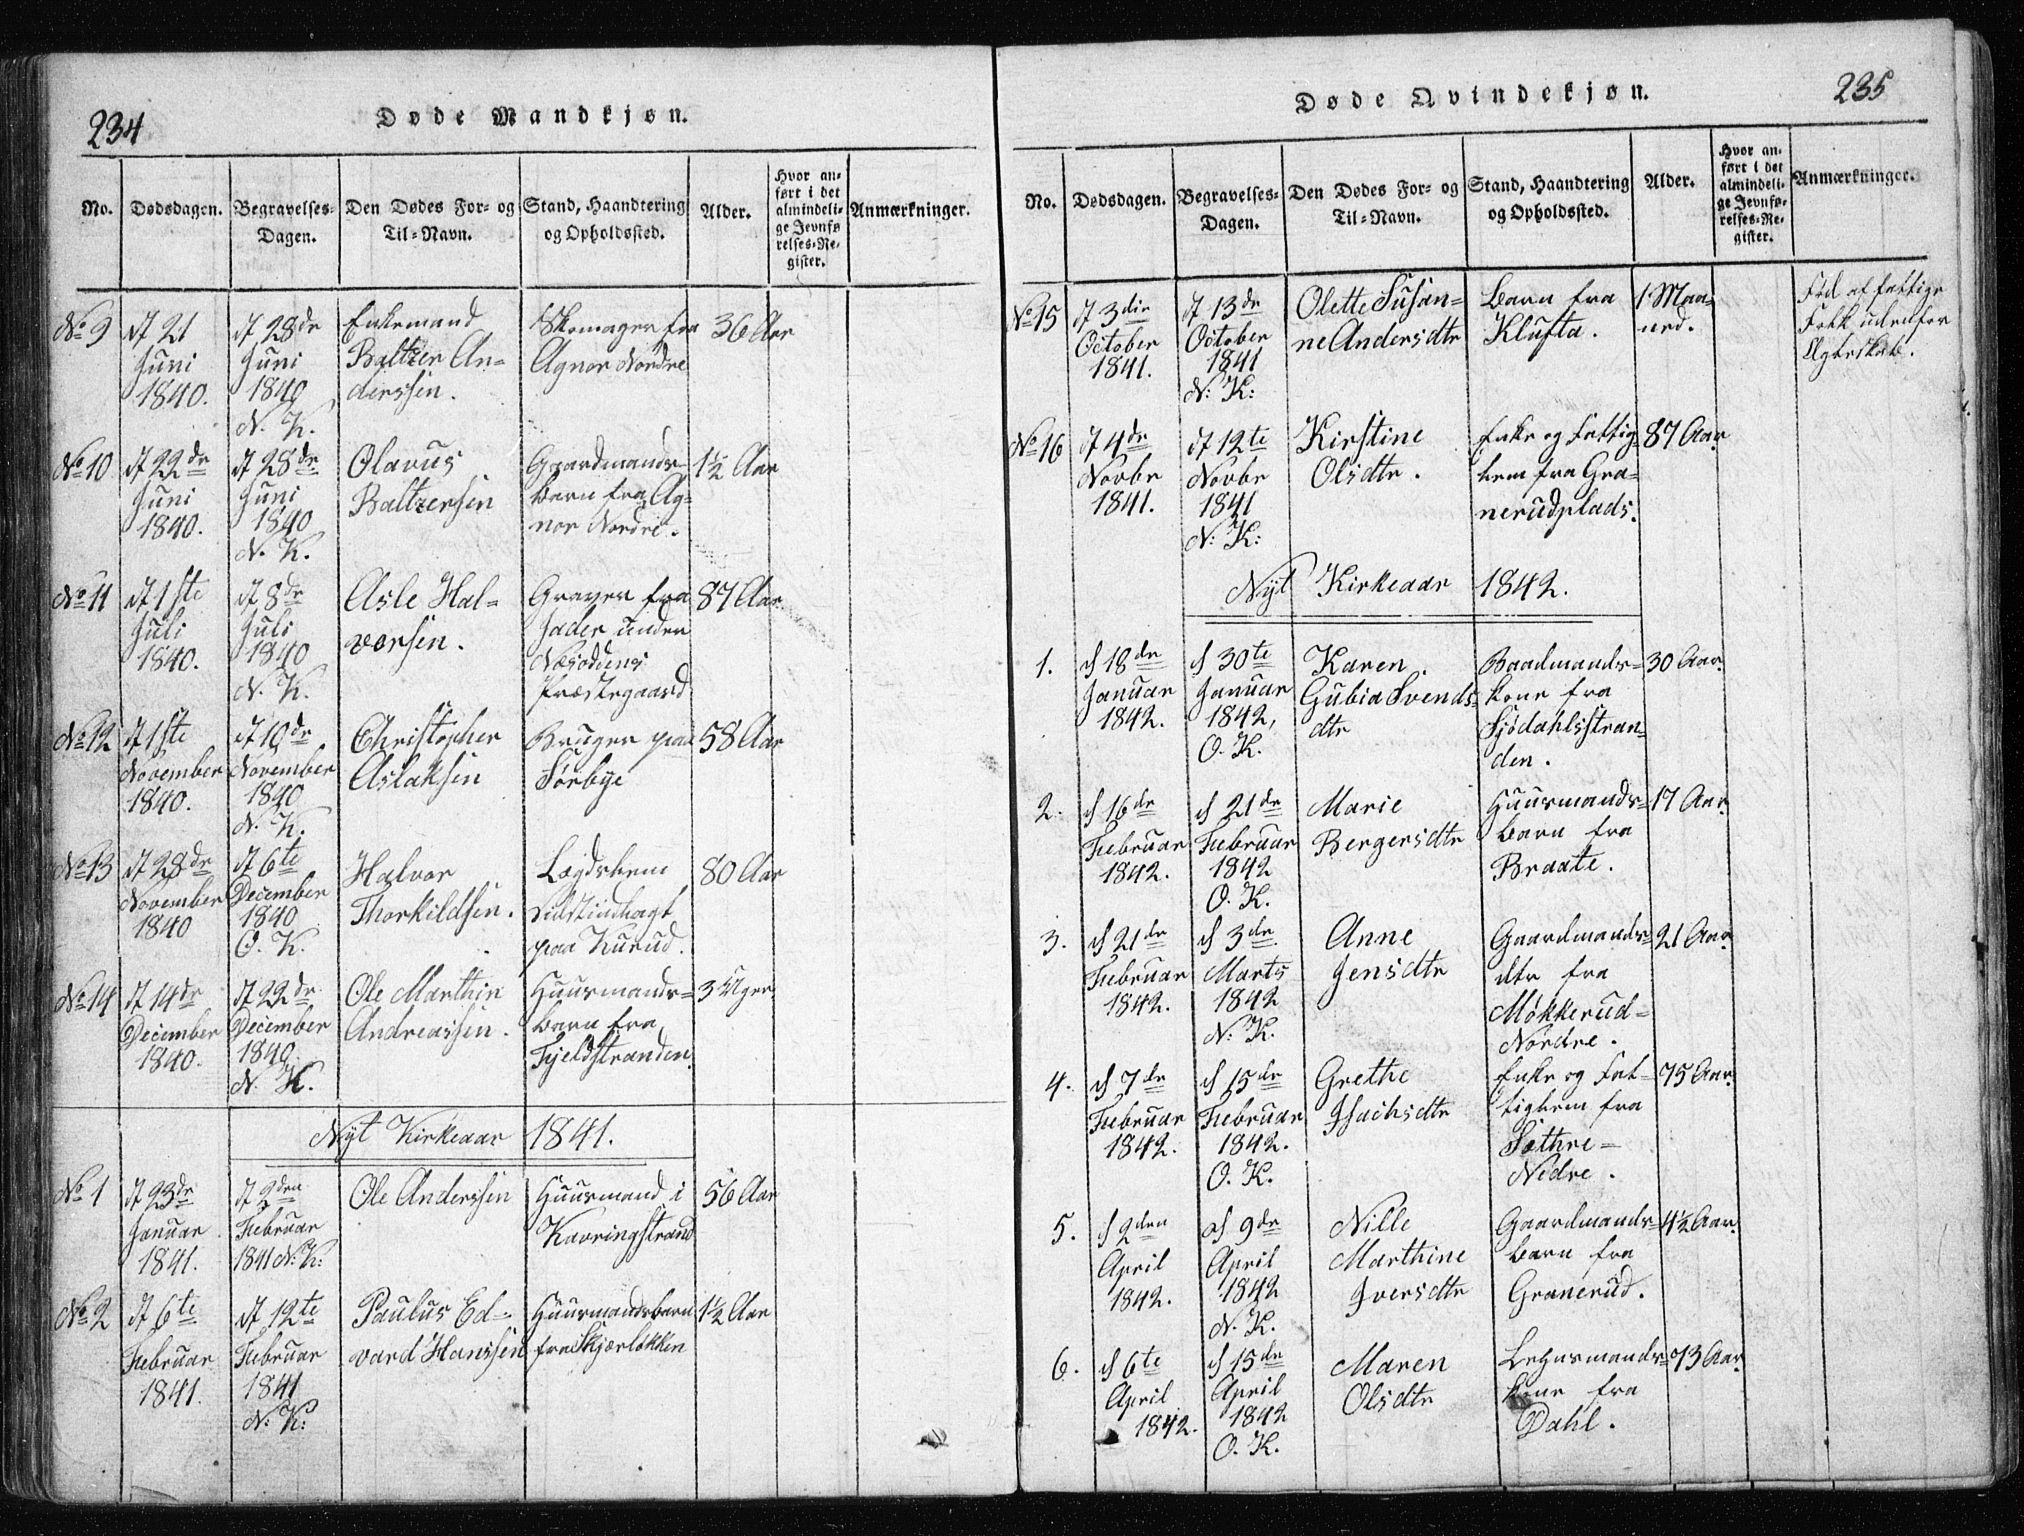 234
Døde Mandkjøn.
No.
Dødsdagen.
Begravelses-
Dagen.
Den Dødes For- og
Til-Navn.
Stand, Haandtering
og Opholdssted.
Alder.
Hvor an-
ført i det
almindeli-
ge Jevnfø
relses-Re-
gister.
Anmærkninger.
No 9
d 21
Juni
1840.
d 28de
Juni
1840
N. K.
Enkemand
Baltzer An-
derssen.
Skomager fra
Agnor Nordre
36 Aar
No 10
d 22de
Juni
1840.
d 28de
Juni
1840
N. K.
Olavus
Baltzersen
Gaardmands-
barn fra Ag-
nor Nordre.
1½ Aar
No 11
d 1ste
Juli
1840.
d 8de
Juli
1840
N. K.
Asle Hal-
vorsen.
Graver fra
Jader under
Næsoddens
Præstegaard
87 Aar
No 12
d 1ste
November
1840.
d 10de
November
1840
N. K.
Christopher
Aslaksen
Bruger paa
Sørbye
58 Aar
No 13
d 28de
November
1840
d 6te
December
1840
O. K.
Halvor
Thorkildsen.
Lægdslem
sidst indlagt
paa Kurud.
80 Aar
No 14
d 14de
December
1840.
d 22de
December
1840
N. K.
Ole Marthin
Andreassen.
Huusmands-
barn fra
Fjeldstranden.
3 Uger
Nyt Kirkeaar 1841.
No 1
d 23de
Januar
1841.
d 2den
Februar
1841 N. K:
Ole Anderssen
Huusmand i
Kavringstrand
56 Aar
No 2
d 6te
Februar
1841.
d 12te
Februar
1841
N. K:
Paulus Ed-
vard Hanssen
Huusmandsbarn
fra Skjærløkken
1½ Aar
235
Døde Qvindekjøn.
No.
Dødsdagen.
Begravelses-
Dagen.
Den Dødes For- og
Til-Navn.
Stand, Haandtering
og Opholdssted.
Alder.
Hvor an-
ført i det
almindeli-
ge Jevnfø-
relses-Re-
gister.
Anmærkninger.
No 15
d 3die
October
1841.
d 13de
October
1841
N: K:
Olette Susan-
ne Andersdtr
Barn fra
Klufta.
1 Maa-
ned.
Fød af fattige
Folk udenfor
Ægteskab.
No 16
d 4de
Novbr
1841.
d 12te
Novbr
1841
N: K:
Kirstine
Olsdtr.
Enke og Fattig
lem fra Gra-
nerudplads.
87 Aar
Nyt Kirkeaar 1842.
1.
d 18de
Januar
1842.
d 30te
Januar
1842,
O. K.
Karen
Gubia Svends-
dtr
Baadmands-
kone fra
Fjödahlsstran-
den.
30 Aar.
2.
d 16de
Februar
1842.
d 21de
Februar
1842
O. K.
Marie
Bergersdtr
Huusmands-
barn fra
Braate.
17 Aar.
3.
d 21de
Februar
1842.
d 3de
Marts
1842
N. K.
Anne
Jensdtr
Gaardmands-
dtr fra
Møkkerud-
Nordre.
21 Aar.
4.
d 7de
Februar
1842.
d 15de
Februar
1842.
O. K.
Grethe
Isachsdtr
Enke og Fat-
tiglem fra
Sæthre-
Nedre.
75 Aar.
5.
d 2den
April
1842.
d 9de
April
1842
N. K.
Nille
Marthine
Iversdtr
Gaardmands-
barn fra
Granerud.
4½ Aar.
6.
d 6te
April
1842.
d 15de
April
1842
O. K.
Maren
Olsdtr
kone fra
Dahl.
73 Aar.